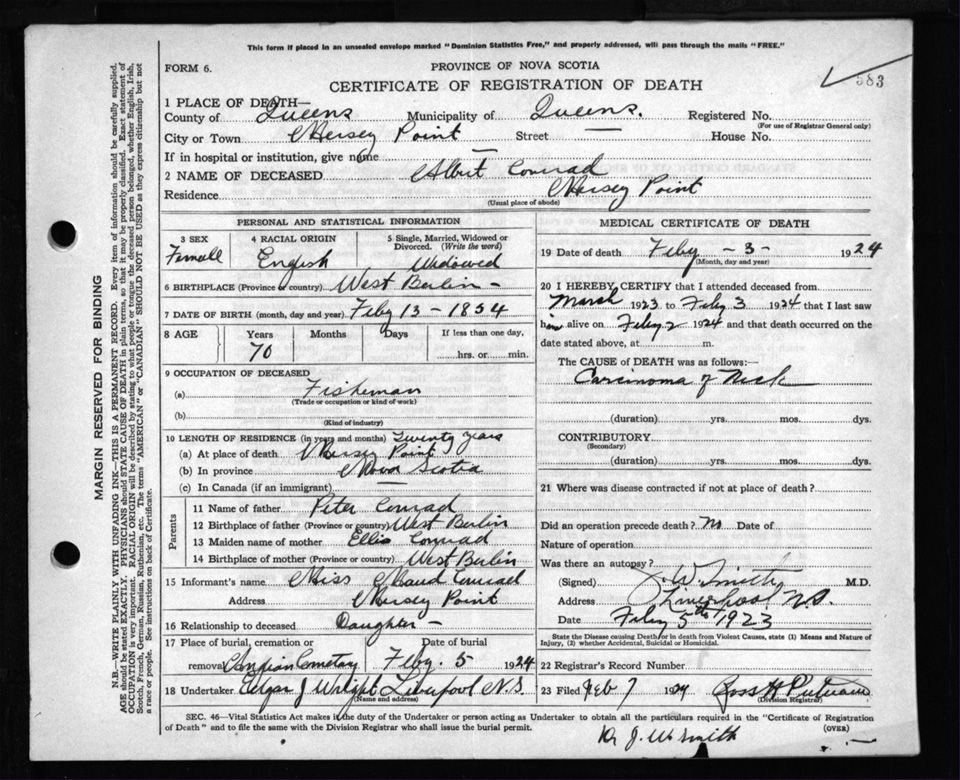 This form if placed in an unsealed envelope marked "Dominion Statistics Free," and properly addressed, will pass through the mails "FREE."
FORM 6.
PROVINCE OF NOVA SCOTIA
383
CERTIFICATE OF REGISTRATION OF DEATH
1 PLACE OF DEATH—
County of Queens Municipality of Queens. Registered No.
(For use of Registrar General only)
City or Town Mersey Point Street — House No.
If in hospital or institution, give name —
2 NAME OF DECEASED Albert Conrad
Residence Mersey Point
(Usual place of abode)
PERSONAL AND STATISTICAL INFORMATION
3 SEX 4 RACIAL ORIGIN 5 Single, Married, Widowed or Divorced. (Write the word)
Female English Widowed
6 BIRTHPLACE (Province or country) West Berlin —
7 DATE OF BIRTH (month, day and year) Feby 13 – 1854
8 AGE Years Months Days If less than one day,
70 hrs. or min.
9 OCCUPATION OF DECEASED
(a) Fisheman
(Trade or occupation or kind of work)
(b)
(Kind of industry)
10 LENGTH OF RESIDENCE (in years and months) Twenty years
(a) At place of death Mersey Point
(b) In province Nova Scotia
(c) In Canada (if an immigrant) —
Parents
11 Name of father Peter Conrad
12 Birthplace of father (Province or country) West Berlin
13 Maiden name of mother Ellis Conrad
14 Birthplace of mother (Province or country) West Berlin
15 Informant's name Miss Maud Conrad
Address Mersey Point
16 Relationship to deceased Daughter —
17 Place of burial, cremation or Date of burial
removal Cemetary Feby. 5 1924
18 Undertaker Edgar J Wright Liverpool N.S.
(Name and address)
MEDICAL CERTIFICATE OF DEATH
19 Date of death Feby – 3 – 1924
(Month, day and year)
20 I HEREBY CERTIFY that I attended deceased from
March 1923 to Feby 3 1924 that I last saw
him alive on Feby 2 1924 and that death occurred on the
date stated above, at m.
The CAUSE of DEATH was as follows:—
Carcinoma of Neck
(duration) yrs. mos. dys.
CONTRIBUTORY
(Secondary)
(duration) yrs. mos. dys.
21 Where was disease contracted if not at place of death?
Did an operation precede death? No Date of
Nature of operation
Was there an autopsy?
(Signed) J. W. Smith M.D.
Address Liverpool N.S.
Date Feby 5th 1923
State the Disease causing Death, or in death from Violent Causes, state (1) Means and Nature of
Injury, (2) whether Accidental, Suicidal or Homicidal.
22 Registrar's Record Number
23 Filed Feb 7 1924 Ross H Putnam
(Division Registrar)
SEC. 46—Vital Statistics Act makes it the duty of the Undertaker or person acting as Undertaker to obtain all the particulars required in the "Certificate of Registration
of Death" and to file the same with the Division Registrar who shall issue the burial permit. (OVER)
Dr J. W. Smith
MARGIN RESERVED FOR BINDING
N.B.—WRITE PLAINLY WITH UNFADING INK—THIS IS A PERMANENT RECORD. Every item of information should be carefully supplied.
AGE should be stated EXACTLY. PHYSICIANS should STATE CAUSE OF DEATH in plain terms, so that it may be properly classified. Exact statement of
OCCUPATION is very important. RACIAL ORIGIN will be described by stating to what people or tongue the deceased person belonged, whether English, Irish,
Scotch, French, German, Russian, Ruthenian, etc. The terms "AMERICAN" or "CANADIAN" SHOULD NOT BE USED as they express citizenship but not
a race or people. See instructions on back of Certificate.